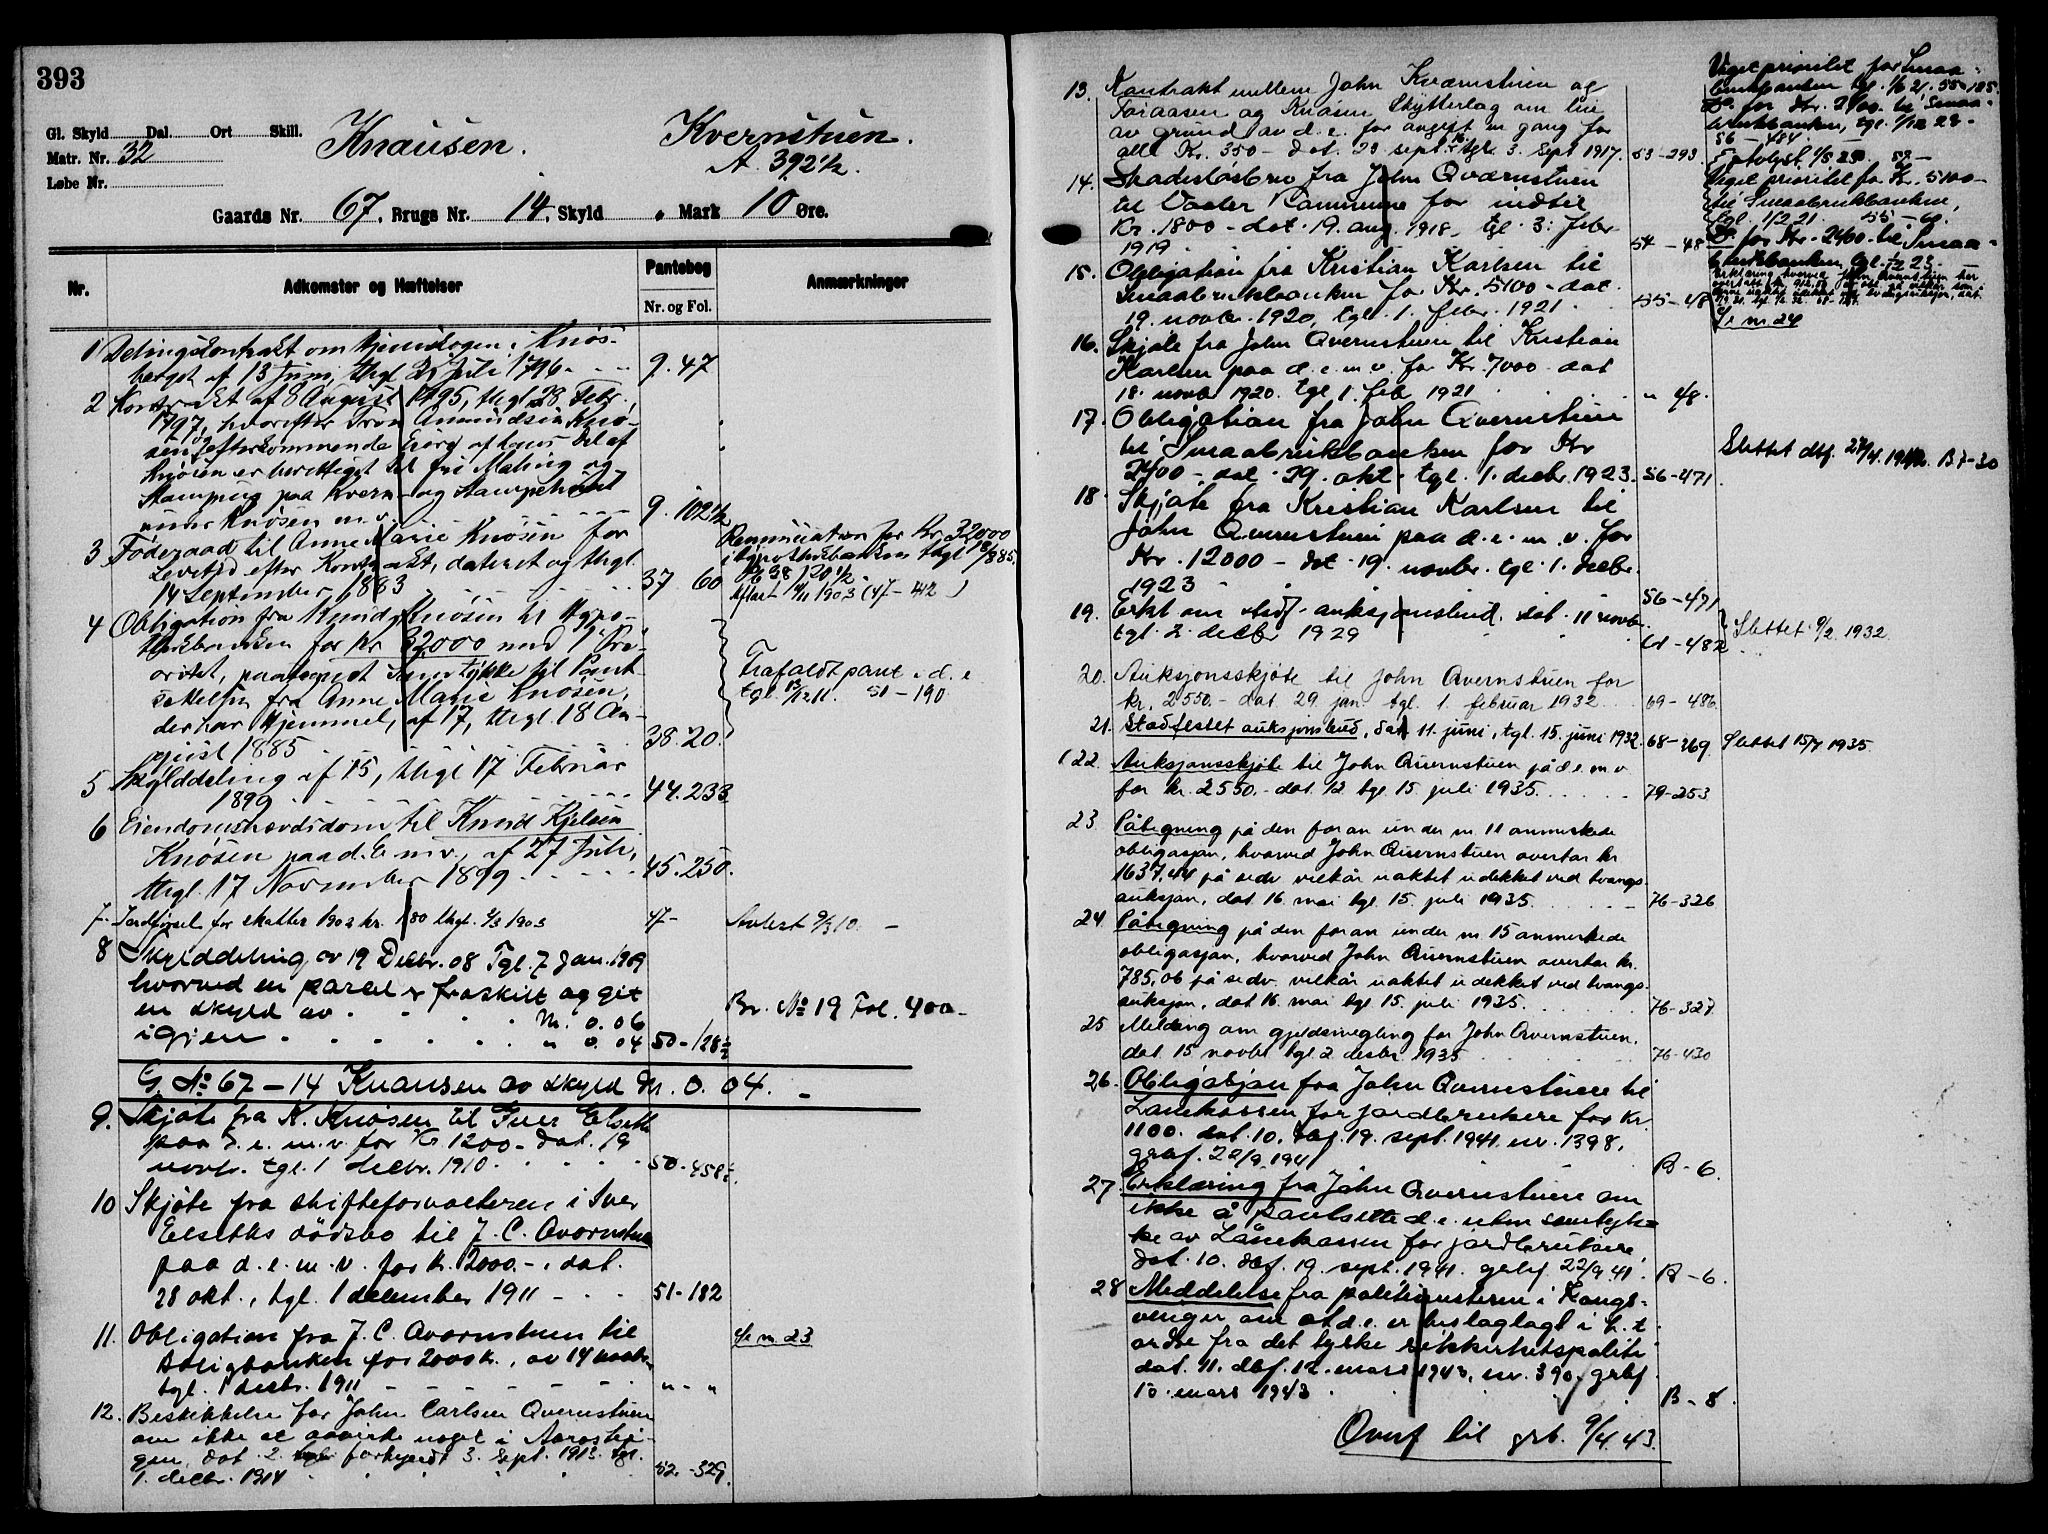 393
Gl. Skyld Dal. Ort Skill.
Matr. Nr. 32
Løbe Nr.
Knausen. Kvernstuen.
A. 392½.
Gaards Nr. 67, Brugs Nr. 14, Skyld " Mark 10 Øre.
Nr. Adkomster og Hæftelser Pantebog Nr. og Fol. Anmærkninger
1 Delingskontrakt om Hjemskogen i Knøs-
berget af 13 Juni, thgl. Juli 1796 9.47
2 Kontrakt af 8 August 1795, thgl. 28 Febr.
1797, hvorefter Tron Amundsen Knø-
sen og efterkommende Eiere af hans Del af
Knøsen er berettiget til fri Maling og
Stamping paa Kvern- og Stampe
under Knøsen m.v. 9.102½
3 Føderaad til Anne Marie Knøsen for
Levetid efter Kontrakt, dateret og thgl.
14 September 1883 37 60
Renunciation for Kr. 32000
i Hypothekbanken thgl. 18/8 85.
Pb 38/20½
Aflæst 1903 (47-412)
4 Obligation fra Knud Knøsen til Hypo-
thekbanken for Kr 32000 med 1 Pri-
oritet, paategnet Samtykke til Pant-
sættelsen fra Anne Marie Knøsen,
der har Hjemmel, af 17, thgl. 18 Au-
gust 1885 38.20.
Frafaldt pant i d. e.
tgl. 13/12 11. 51-190
5 Skylddeling af 15, thgl 17 Februar
1899 44.233
6 Eiendomshævdsdom til Knud Kjelsen
Knøsen paa d. E. m.v., af 27 Juli,
thgl. 17 November 1899 45.250.
7. Jordførsel for skatter 1902 kr. 1.80 thgl. 2/3 1903 47-
Avlest 9/3 10. -
8 Skylddeling av 19 Decbr. 08 Tgl. 7 Jan. 1909
hvorved en parcel er fraskilt og git
en skyld av M. 0.06
igjen " 0.04 50-128½
Br. No 19 Fol. 400-
G. No 67-14 Knausen av skyld M. 0.04.-
9. Skjøte fra K. Knøsen til Iver Elseth
paa d. e. m. v. for Kr 1200- dat. 19
novbr. tgl. 1 decbr. 1910. 50-458½.
10 Skjøte fra skifteforvalteren i Iver
Elseths dødsbo til J. C. Qvernstuen
paa d. e. m. v. for Kr. 2000.- dat.
28 okt., tgl. 1 december 1911 51-182
11. Obligation fra J. C. Qvernstuen til
Boligbanken for 2000 k., av 14 novbr.
tgl. 1 decbr. 1911 " - "
cfr n. 23
12. Beskikkelse for John Carlsen Qvernstuen
om ikke at avvirke noget i Aaroshø-
gen, dat. 2 forkyndt 3. sept. 1913. tgl.
1. decbr. 1914 52.-329.
13. Kontrakt mellem John Kværnstuen og
Toraasen og Knøsen Skytterlag om leie
av grund av d. e. for avgift en gang for
alle Kr. 350- dat. 29 sept. tgl. 3. Sept 1917. 53-293
14. Skadesløsbrev fra John Qværnstuen
til Vaaler Commune for indtil
Kr. 1800- dat. 19. aug. 1918, tgl. 3. febr
1919 54-48
15. Obligation fra Kristian Karlsen til
Smaabrukbanken for Kr. 5100- dat.
19. novbr. 1920, tgl. 1. febr. 1921 55-48
16. Skjøte fra John Qvernstuen til Kristian
Karlsen paa d. e. m. v. for Kr. 7000- dat
18. novb 1920. tgl 1. feb 1921 " 48.
17. Obligation fra John Qvernstuen
til Smaabrukbanken for Kr
2400- dat 29. okt. tgl. 1. decbr. 1923. 56-471
Slettet dbf. 27/4 1942. B7-30
18 Skjøte fra Kristian Karlsen til
John Qvernstuen paa d. e. m. v. for
Kr. 12000- dat 19. novbr. tgl. 1. decbr.
1923 56-471
19. Erkl om stadf. auksjonsbud. dat. 11 novbr.
tgl. 2. decbr 1929 61-482
Slettet 9/2 1932
20. Auksjonsskjøte til John Qvernstuen for
kr. 2550.- dat. 29. jan. tgl. 1. februar 1932 69-486
21. Stadfestet auksjonsbud, dat 11. juni, tgl. 15. juni 1932. 68-269.
Slettet 15/7 1935.
22. Auksjonsskjøte til John Qvernstuen på d. e. m. v
for kr. 2550.- dat. 12. tgl. 15. juli 1935. 79-253
23 Påtegning på den foran under nr. 11 anmerkede
obligasjon, hvorved John Qvernstuen overtar kr
1637.44 på sedv. vilkår uaktet udekket ved tvangs-
auksjon, dat 16. mai tgl. 15. juli 1935. 76-326
24 Påtegning på den foran under nr. 15 anmerkede
obligasjon, hvorved John Qvernstuen overtar kr.
785,06 på sedv. vilkår uaktet udekket ved tvangs-
auksjon, dat 16. mai tgl. 15. juli 1935. 76-327
25 Melding om gjeldsmegling for John Qvernstuen,
dat. 15 novbr tgl. 2. desbr. 1935 76-430
26. Obligasjon fra John Qvernstuen til
Lånekassen for jordbrukere for kr.
1100. dat. 10. dbf. 19. sept. 1941. nr. 1398,
grbf. 22/9 1941 B-6.
27. Erklæring fra John Qvernstuen om
ikke å pantsette d. e. uten samtyk-
ke av Lånekassen for jordbrukere,
dat. 10. dbf. 19. sept. 1941. grbf. 22/9 41. B-6.
28 Meddelelse fra politimesteren i Kongs-
vinger om at d. e. er beslaglagt i h. t.
ordre fra det tyske sikkerhetspoliti
dat. 11. dbf. 12. mars 1943, nr. 390, grbf
15. mars 1943 B-8.
Overf til grb. 9/4. 43.
Veget prioritet for Smaa-
brukbanken tgl. 1/6 21. 55-185.
Do for Kr. 2400. til Smaa-
brukbanken, tgl. 1/12 23-
56-484
Veget prioritet for Kr. 5100-
til Smaabrukbanken,
tgl. 1/2 21. 55-48.
Do for Kr. 2400- til Smaa-
brukbanken, tgl. 1/12 23-
cfr nr 24